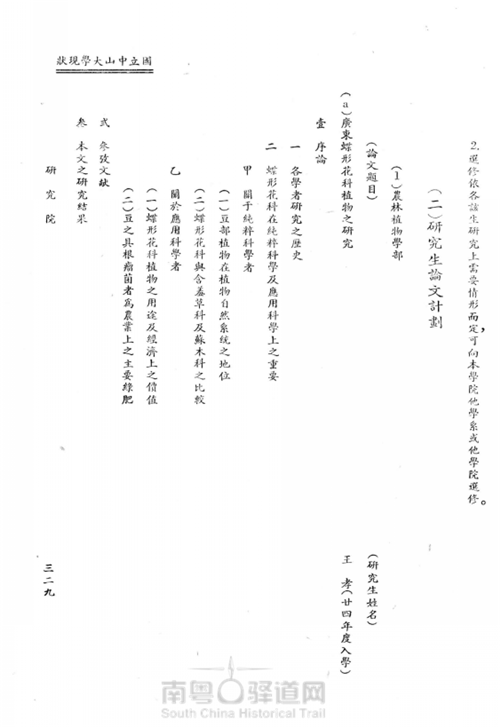 2. 選修依各該生研究上需要情形而定，可向本學院他學系或他學院選修。
（二）研究生論文計劃
（1）農林植物學部
（論文題目）　（研究生姓名）
（a）廣東蝶形花科植物之研究　王孝（廿四年度入學）
壹　序論
一　各學者研究之歷史
二　蝶形花科在純粹科學及應用科學上之重要
甲　關于純粹科學者
（一）豆部植物在植物自然系統之地位
（二）蝶形花科與含羞草科及蘇木科之比較
乙　關於應用科學者
（一）蝶形花科植物之用途及經濟上之價值
（二）豆之具根瘤菌者爲農業上之主要綠肥
貳　參攷文獻
叁　本文之研究結果
研究院　三二九
國立中山大學現狀
南粤驿道网
South China Historical Trail